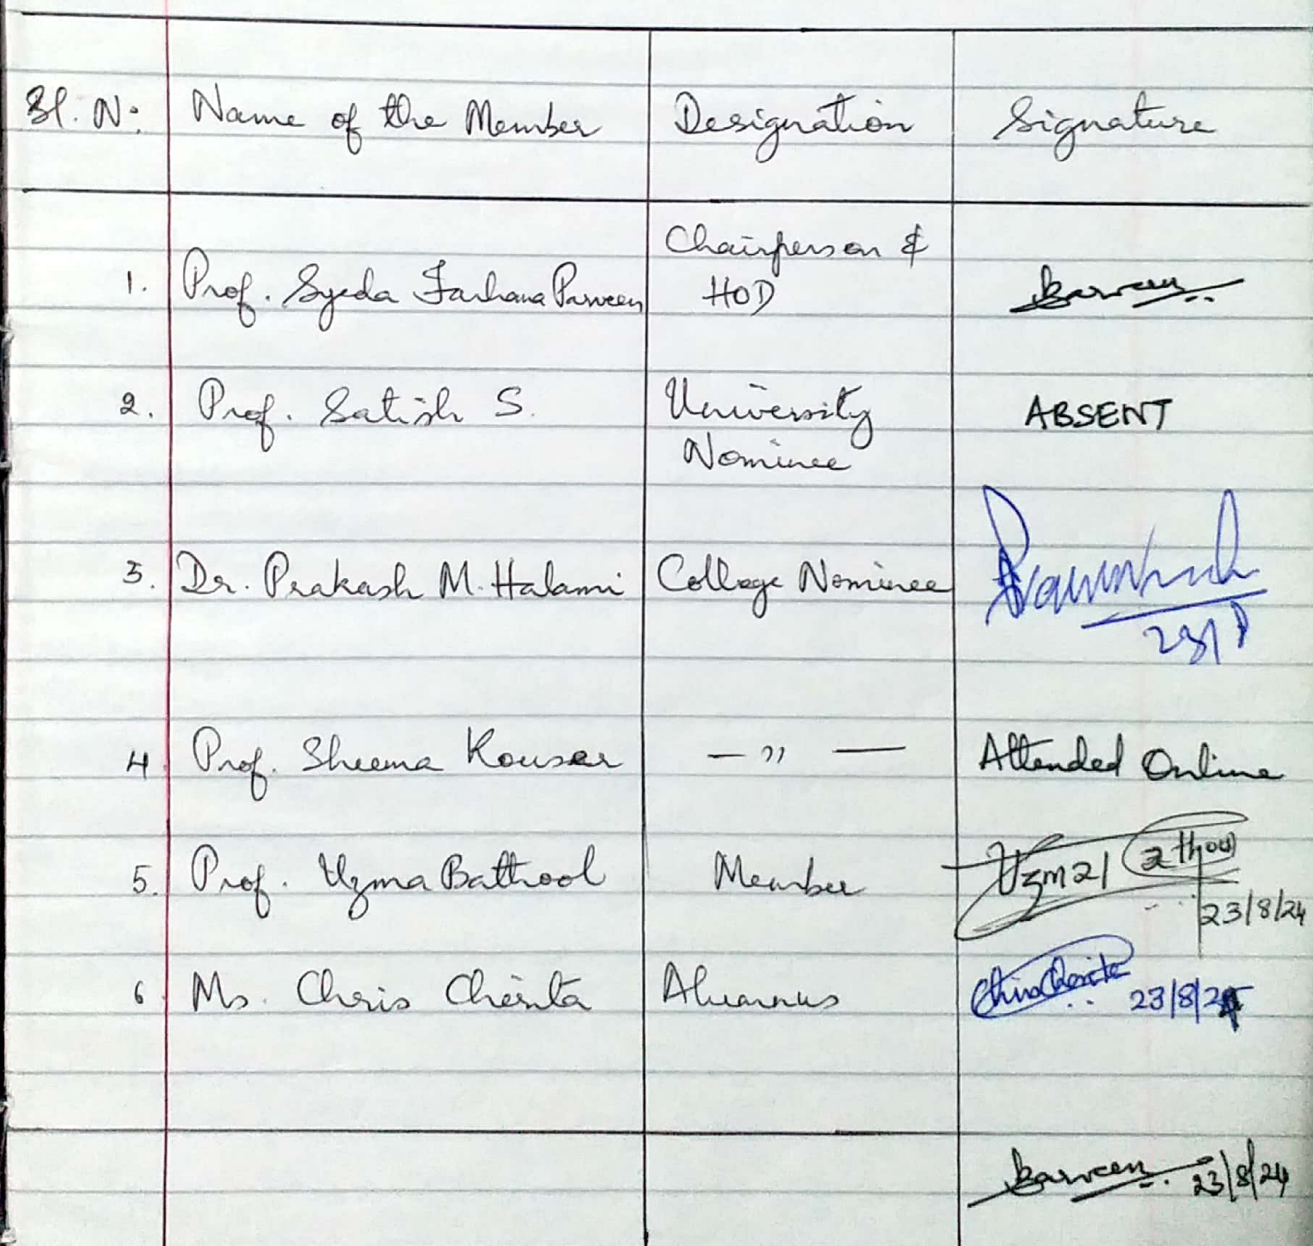 Sl. No: Name of the Member Designation Signature
Chairperson &
1. Prof. Syeda Farhana Parveen HOD Parveen
2. Prof. Satish S. University ABSENT
Nominee
3. Dr. Prakash M. Halami College Nominee
23/8
4 Prof. Sheema Kouser — " — Attended Online
5. Prof. Uzma Bathool Member Uzma
23/8/24
6 Ms. Chris Cherita Alumnus Chris Cherita 23/8/24
Parveen 23/8/24